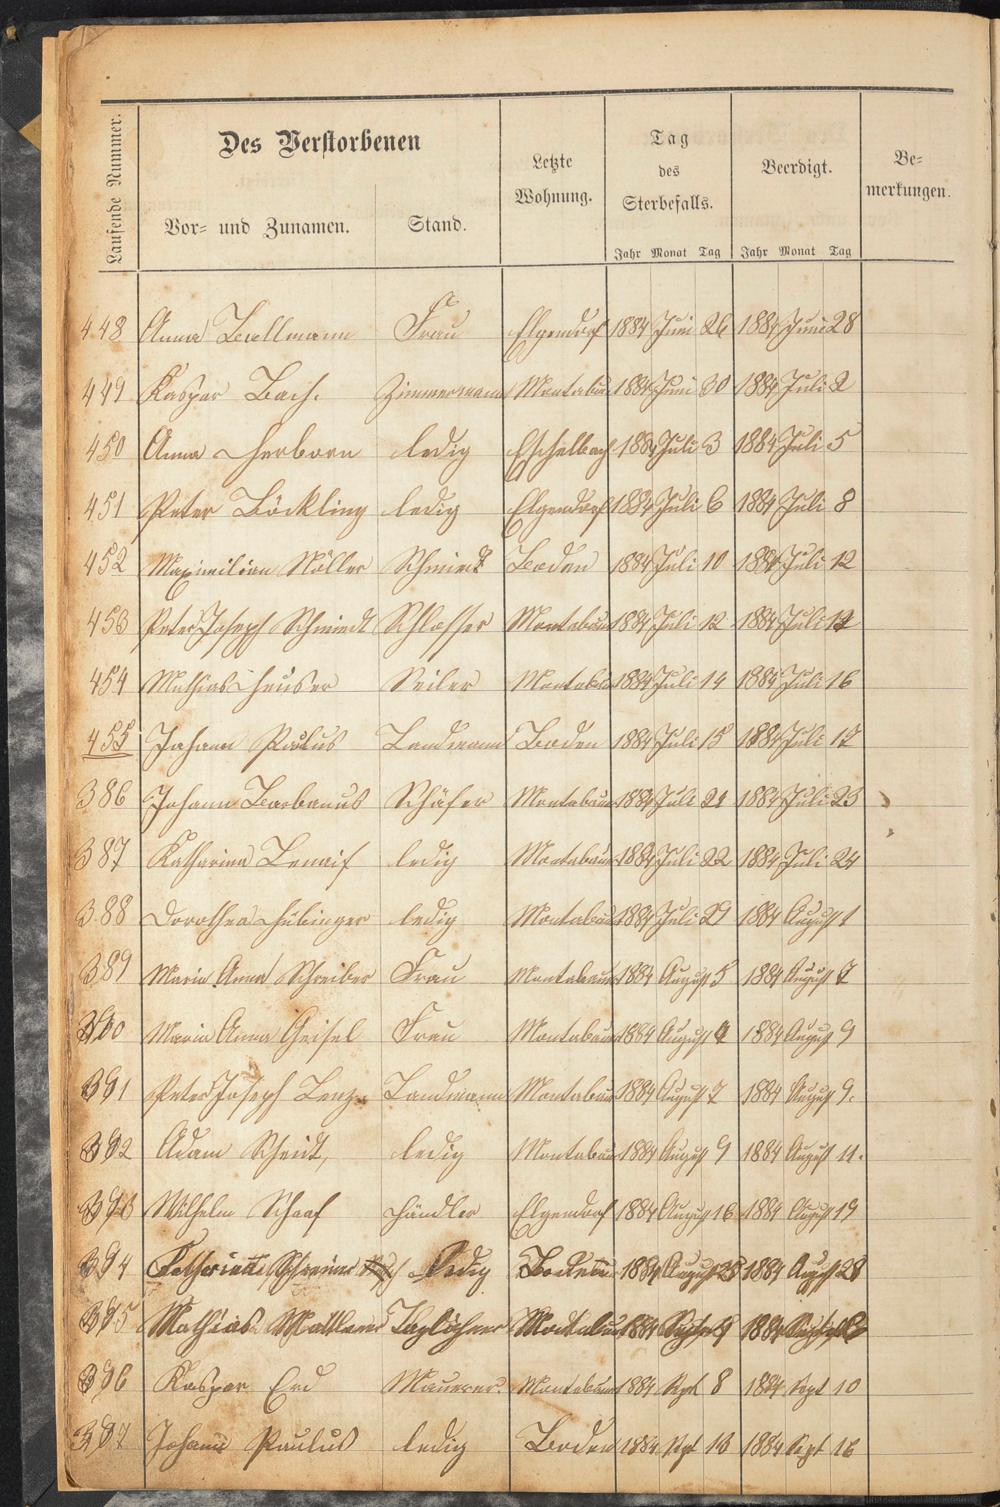 Laufende Nummer.
Des Verstorbenen
Vor- und Zunamen.
Stand.
Letzte
Wohnung.
Tag
des
Sterbefalls.
Jahr Monat Tag
Beerdigt.
Jahr Monat Tag
Be-
merkungen.
448 Anna Ballmann Frau Elgendorf 1884 Juni 26 1884 Juni 28
449 Kaspar Bach. Zimmermann Montabaur 1884 Juni 30 1884 Juli 2
450 Anna Herborn ledig Eschelbach 1884 Juli 3 1884 Juli 5
451 Peter Böckling ledig Elgendorf 1884 Juli 6 1884 Juli 8
452 Maximilian Nöller Schmied Boden 1884 Juli 10 1884 Juli 12
453 Peter Joseph Schmidt Schlosser Montabaur 1884 Juli 12 1884 Juli
454 Mathias Heuser Seiler Montabaur 1884 Juli 14 1884 Juli 16
455 Johann Paulus Landmann Boden 1884 Juli 15 1884 Juli 17
386 Johann Barbanus Schäfer Montabaur 1884 Juli 21 1884 Juli 23
387 Katharina ledig Montabaur 1884 Juli 22 1884 Juli 24
388 Dorothea Hübinger ledig Montabaur 1884 Juli 29 1884 August 1
389 Maria Anna Schreiber Frau Montabaur 1884 August 5 1884 August 7
390 Maria Anna Geisel Frau Montabaur 1884 August 1884 August 9
391 Peter Joseph Lenz Landmann Montabaur 1884 August 7 1884 August 9.
392 Adam Scheidt, ledig Montabaur 1884 August 9 1884 August 11.
393 Wilhelm Schaaf Händler Elgendorf 1884 August 16 1884 August 19
394 Schreiner ledig Boden 1884 August 1884 August 28
395 Mathias Taglöhner Montabaur 1884 1884
396 Kaspar Erd Maurer. Montabaur 1884 Sept 8 1884 Sept 10
397 Johann Paulus ledig Boden 1884 Sept 13 1884 Sept 16